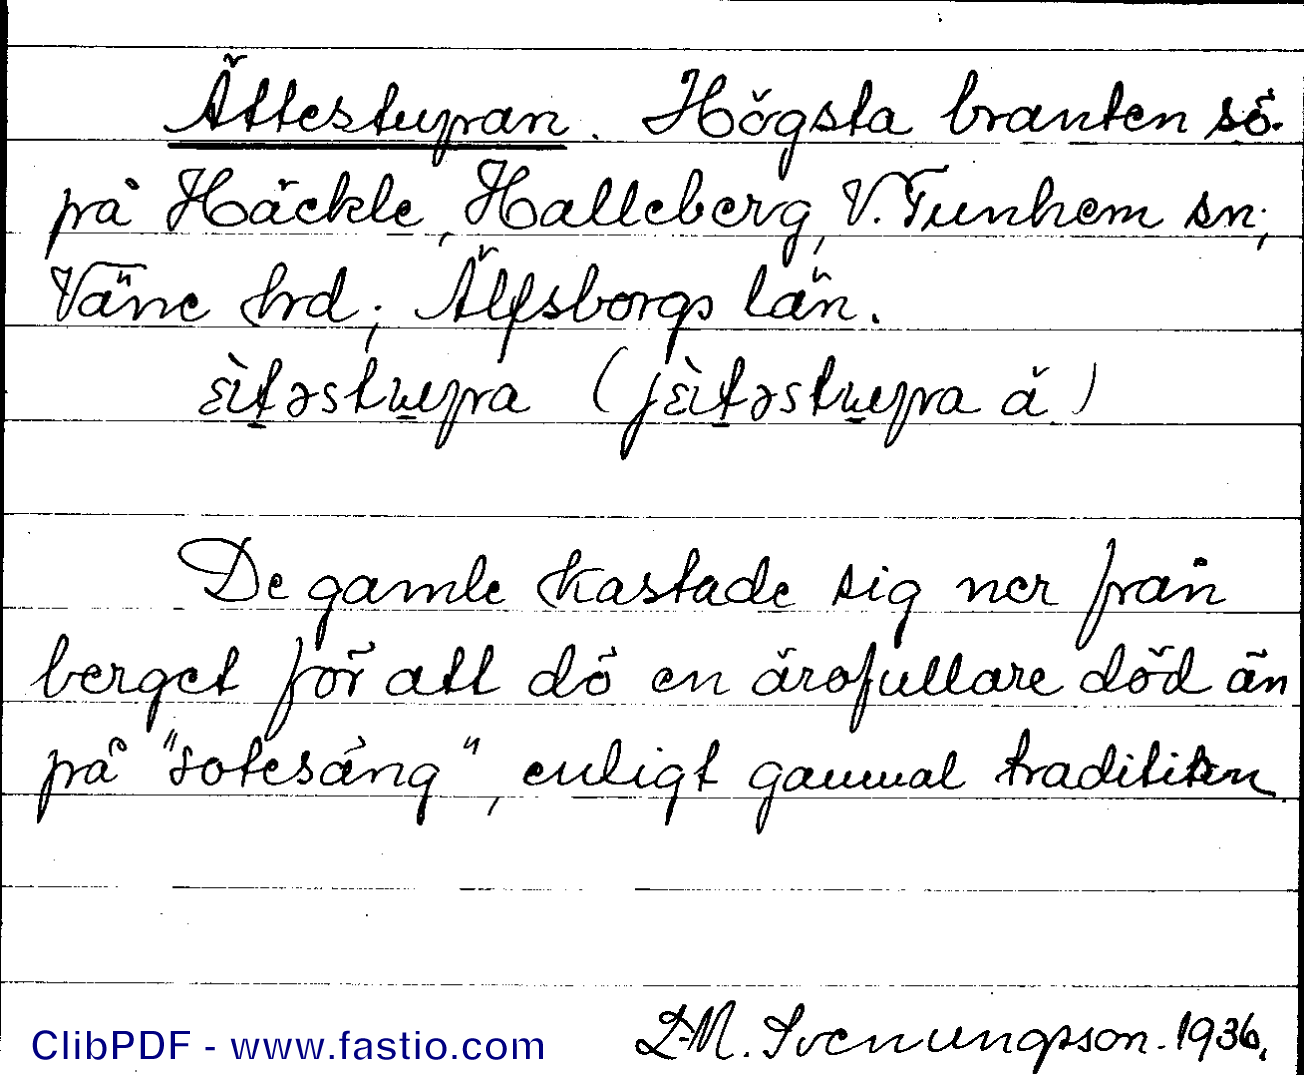 Ättestupan. Högsta branten sö.
på Häckle, Halleberg, V. Tunhem sn;
Väne hrd; Älfsborgs län.
De gamle kastade sig ner från
berget för att dö en ärofullare död än
på "sotesäng", enligt gammal tradition
D-M. Svenungsson. 1936.
ClibPDF - www.fastio.com